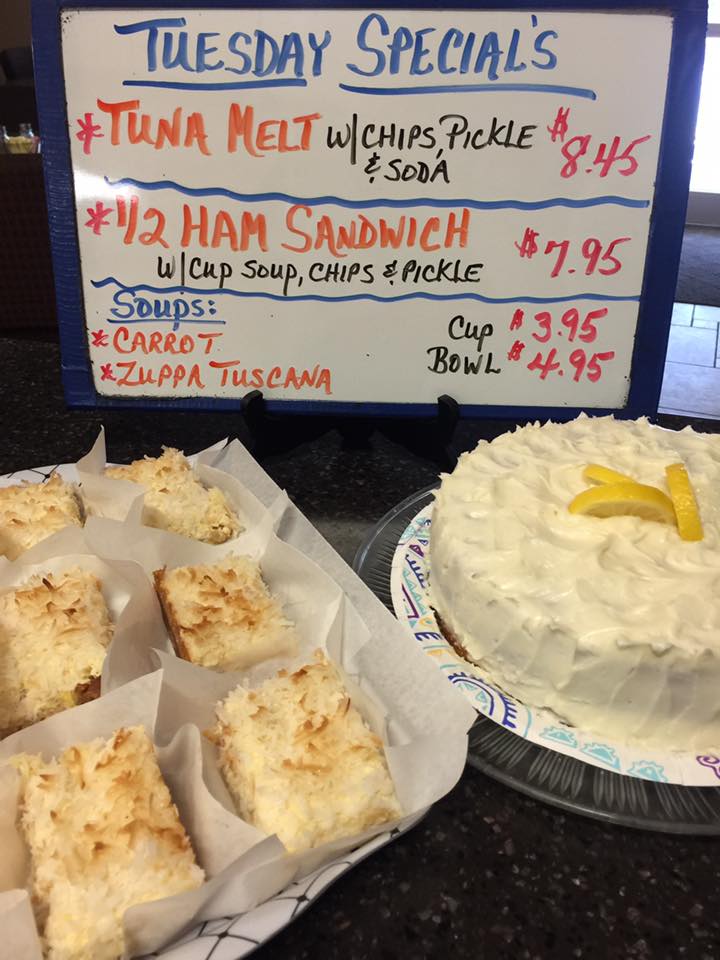 TUESDAY SPECIAL'S
*TUNA MELT W/CHIPS, PICKLE $8.45
& SODA
*1/2 HAM SANDWICH $7.95
W/CUP SOUP, CHIPS & PICKLE
SOUPS:
*CARROT CUP $3.95
*ZUPPA TUSCANA BOWL $4.95